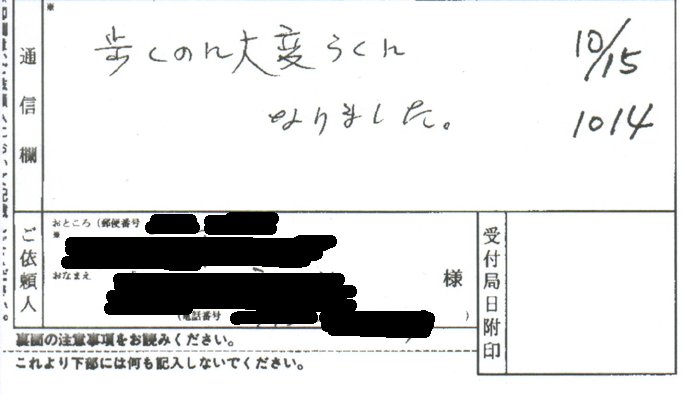 ※
歩くのに大変らくに
10/15
なりました。
1014
通信欄
おところ（郵便番号
※
おなまえ
様
（電話番号 ）
ご依頼人
受付局日附印
裏面の注意事項をお読みください。
これより下部には何も記入しないでください。